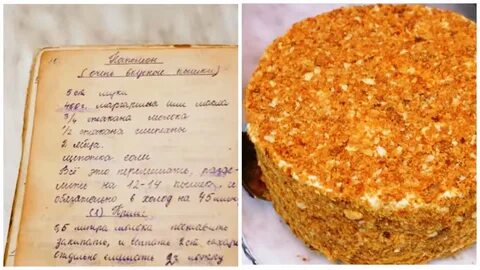 Наполеон
(очень вкусные пышки)
3 ст муки
400г маргарина или масла
3/4 стакана молока
1/2 стакана сметаны
2 яйца
щепотка соли
Всё это перемешать, разде-
лить на 12-14 пышек, и
обязательно в холод на 45 мин
(1) Крем:
0,5 литра молока поставить
закипать, и всыпать 2 ст сахара
отдельно смешать